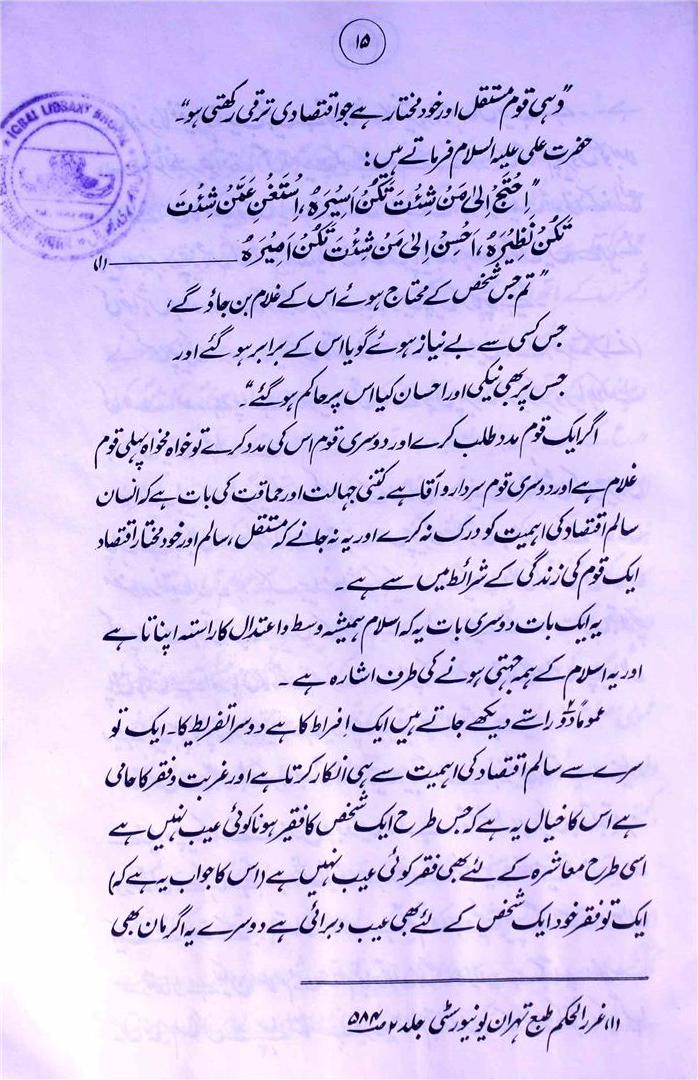 ۱۵
”وہی قوم مستقل اور خود مختار ہے جو اقتصادی ترقی رکھتی ہو“۔
حضرت علی علیہ السلام فرماتے ہیں :
”اِحْتَجْ اِلیٰ مَنْ شِئْتَ تَکُنْ اَسِیْرَہُ ، اسْتَغْنِ عَمَّنْ شِئْتَ
تَکُنْ نَظِیْرَہُ ، اَحْسِنْ اِلیٰ مَنْ شِئْتَ تَکُنْ اَمِیْرَہُ ــــــــــ (۱)
”تم جس شخص کے محتاج ہوئے اس کے غلام بن جاؤ گے ،
جس کسی سے بے نیاز ہوئے گویا اس کے برابر ہو گئے اور
جس پر بھی نیکی اور احسان کیا اس پر حاکم ہو گئے“۔
اگر ایک قوم مدد طلب کرے اور دوسری قوم اس کی مدد کرے تو خواہ مخواہ پہلی قوم
غلام ہے اور دوسری قوم سردار و آقا ہے۔ کتنی جہالت اور حماقت کی بات ہے کہ انسان
سالم اقتصاد کی اہمیت کو درک نہ کرے اور یہ نہ جانے کہ مستقل ، سالم اور خود مختار اقتصاد
ایک قوم کی زندگی کے شرائط میں سے ہے۔
یہ ایک بات دوسری بات یہ کہ اسلام ہمیشہ وسط و اعتدال کا راستہ اپناتا ہے
اور یہ اسلام کے ہمہ جہتی ہونے کی طرف اشارہ ہے ۔
عموماً دو راستے دیکھے جاتے ہیں ایک افراط کا ہے دوسرا تفریط کا۔ ایک تو
سرے سے سالم اقتصاد کی اہمیت سے ہی انکار کرتا ہے اور غربت و فقر کا حامی
ہے اس کا خیال یہ ہے کہ جس طرح ایک شخص کا فقیر ہونا کوئی عیب نہیں ہے
اسی طرح معاشرہ کے لئے بھی فقر کوئی عیب نہیں ہے (اس کا جواب یہ ہے کہ)
ایک تو فقر خود ایک شخص کے لئے بھی عیب و برائی ہے دوسرے یہ اگر مان بھی
(۱) غرر الحکم طبع تہران یونیورسٹی جلد ۲ ص ۵۸۴
IQBAL LIBRARY BHOPAL